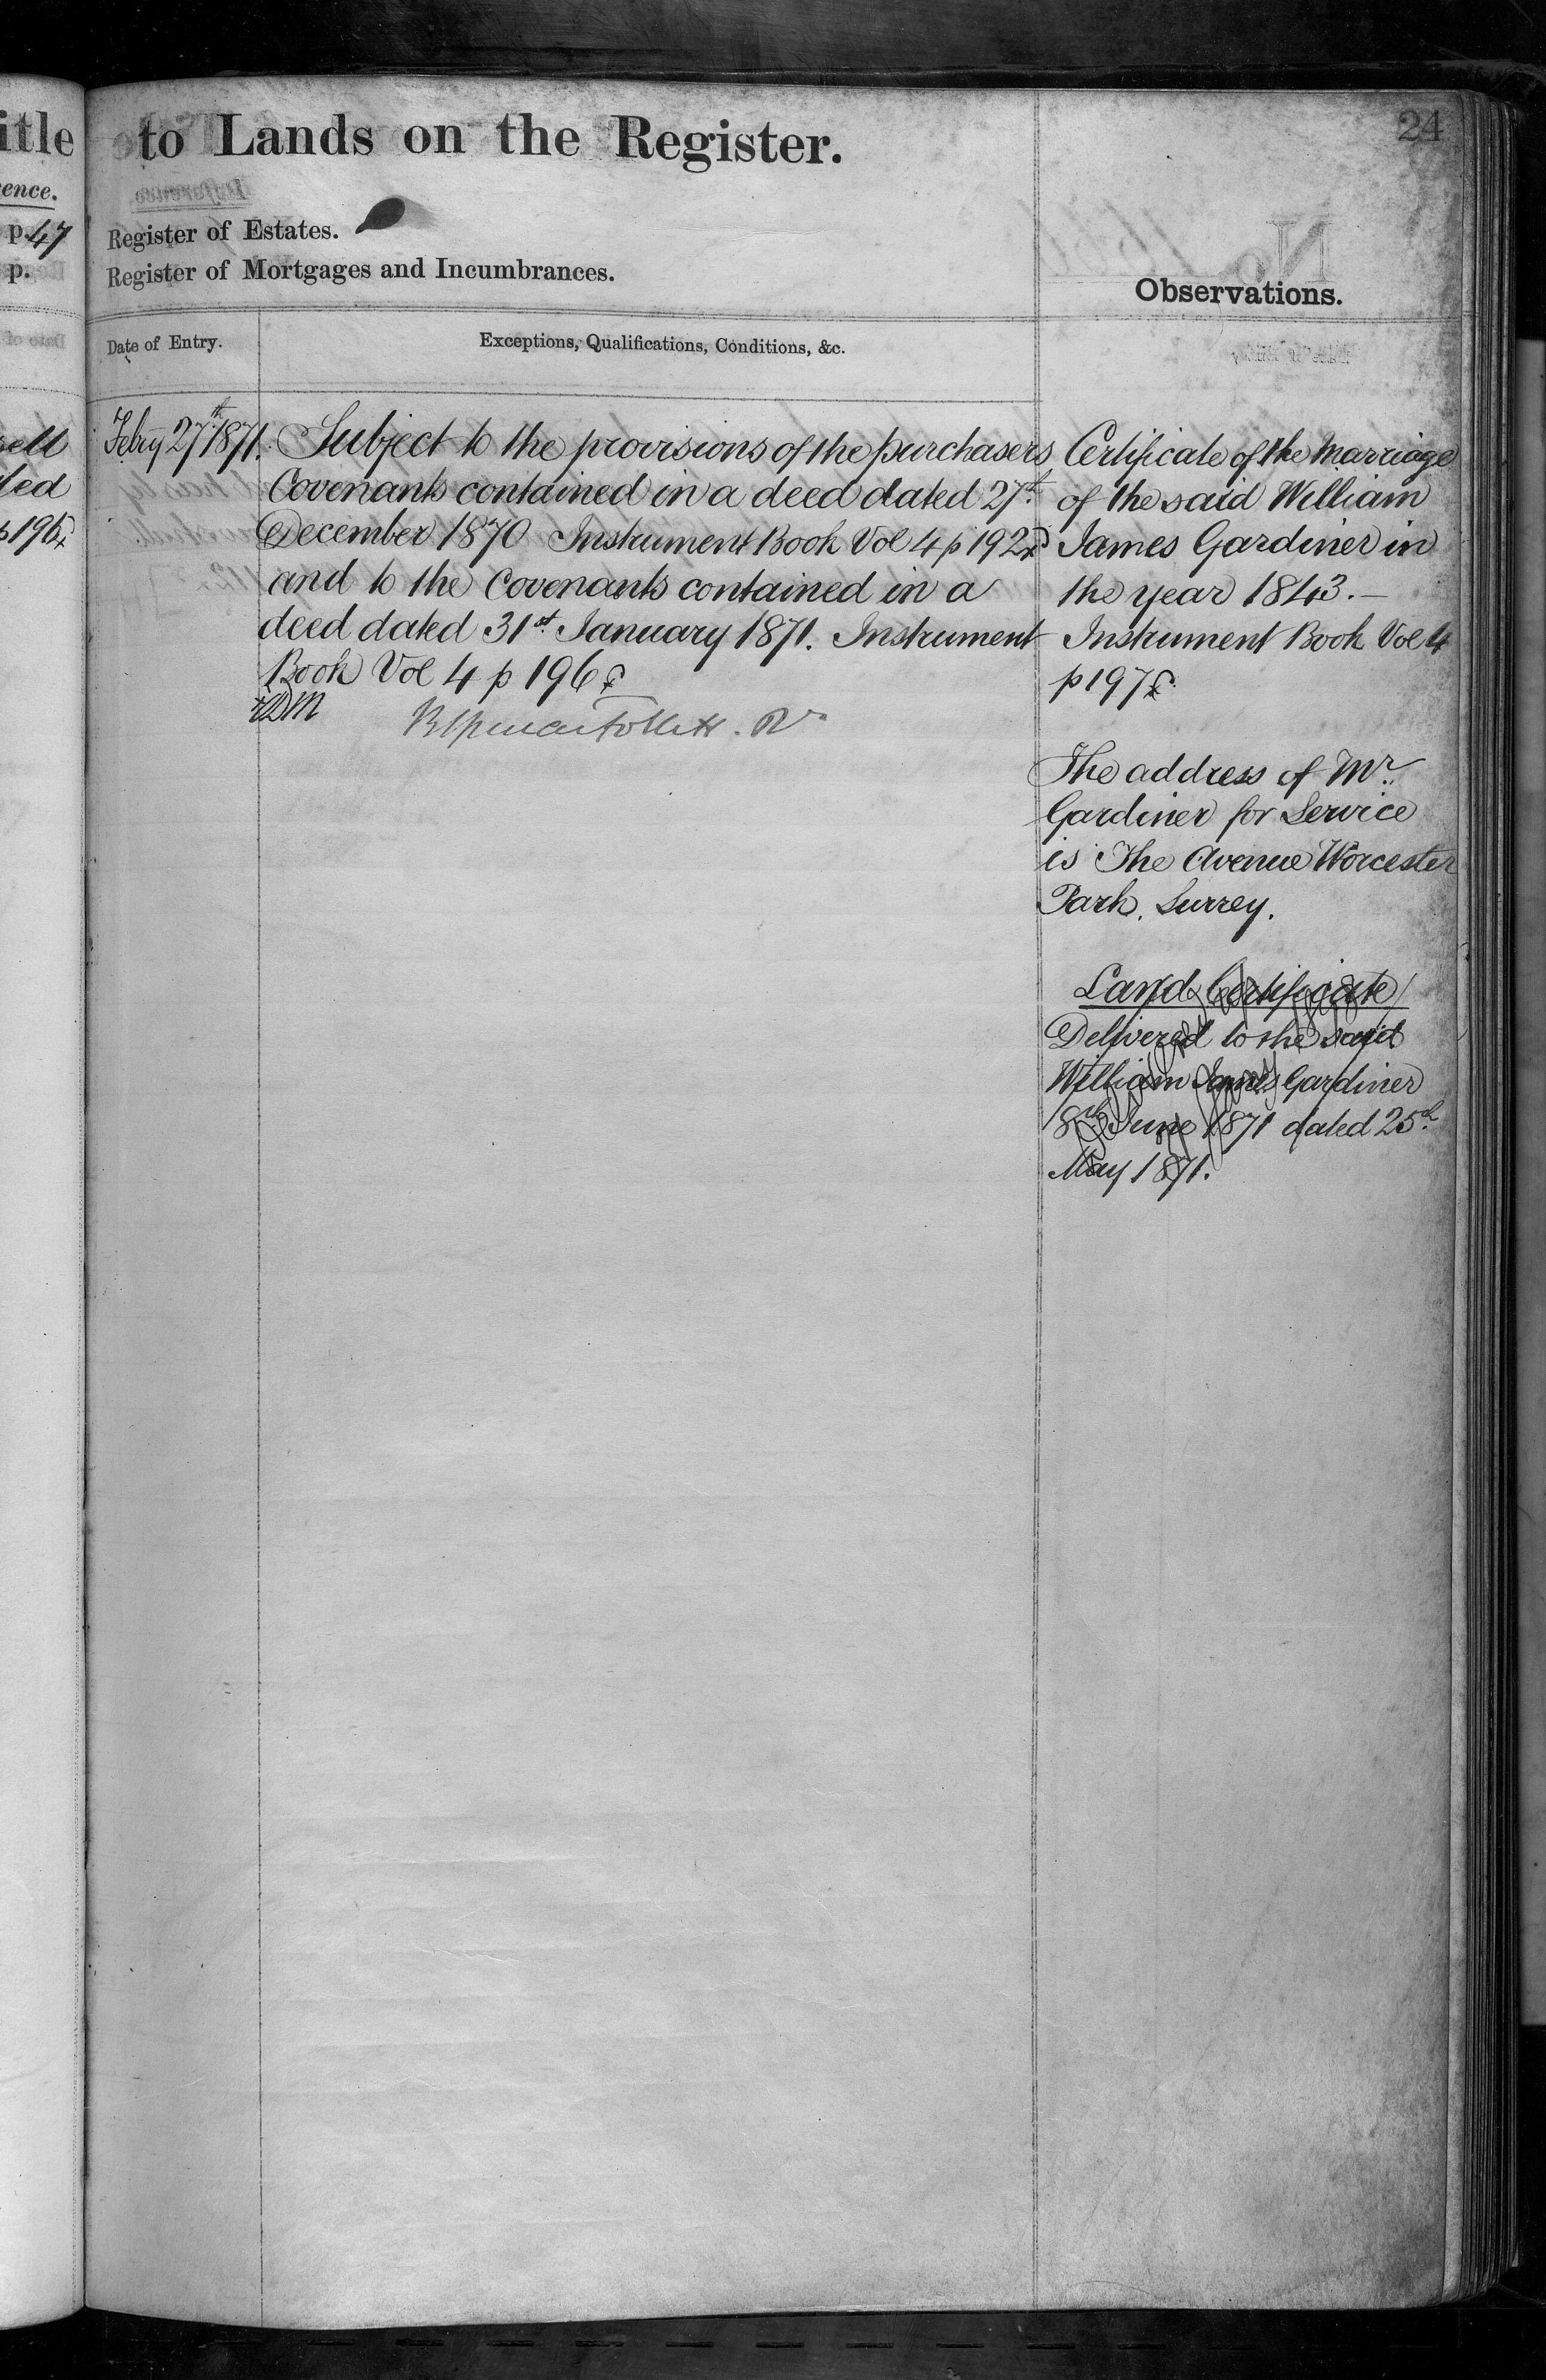 itle
ence.
p. 47
p.
ell
ted
p196
to Lands on the Register.
24
Register of Estates.
Register of Mortgages and Incumbrances.
Observations.
Date of Entry.
Exceptions, Qualifications, Conditions, &c.
Febry 27th 1871.
Subject to the provisions of the purchasers
Covenants contained in a deed dated 27th
December 1870 Instrument Book Vol 4 p 192
and to the Covenants contained in a
deed dated 31st January 1871. Instrument
Book Vol 4 p 196
DM
Certificate of the Marriage
of the said William
James Gardiner in
the year 1843.—
Instrument Book Vol 4
p 197
The address of Mr.
Gardiner for Service
is The Avenue Worcester
Park. Surrey.
Land Certificate
Delivered to the said
William James Gardiner
8th June 1871 dated 25th
May 1871.